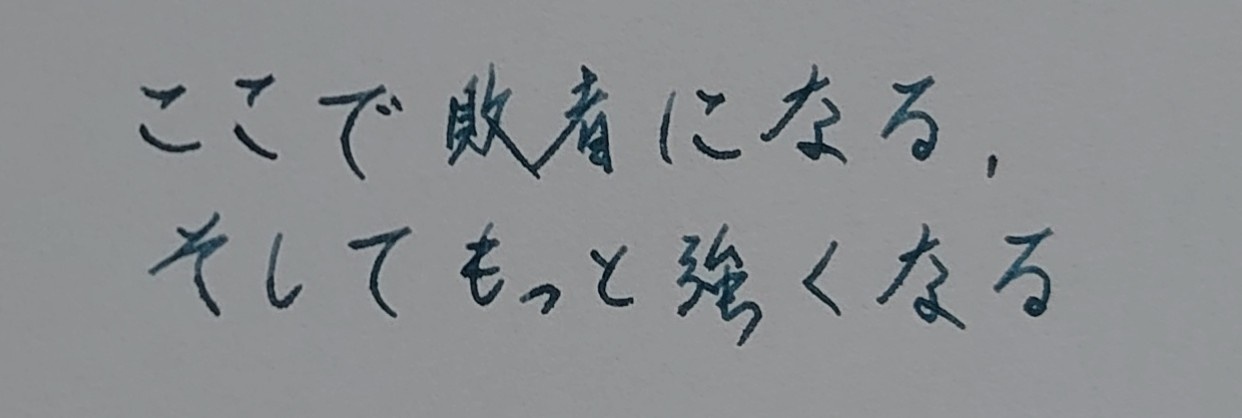 ここで敗者になる,
そしてもっと強くなる